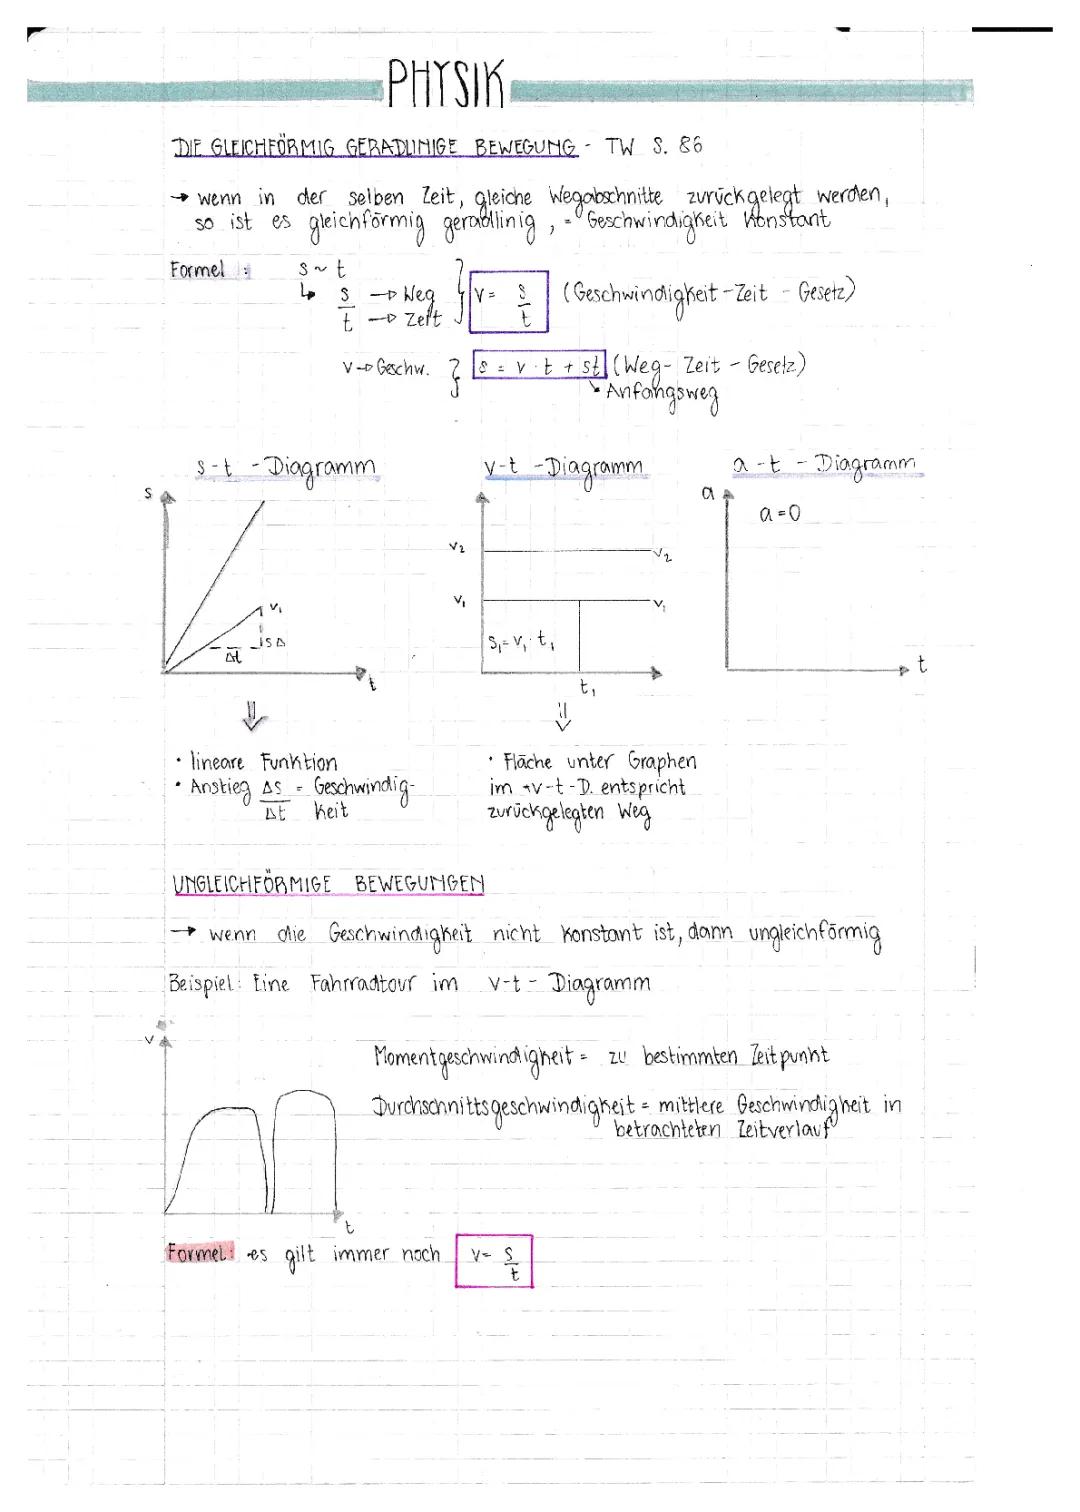 PHYSIK
DIE GLEICHFÖRMIG GERADLINIGE BEWEGUNG - TW S. 86
→ wenn in der selben Zeit, gleiche Wegabschnitte zurückgelegt werden,
so ist es gleichförmig geradlinig, = Geschwindigkeit konstant
Formel: s ~ t
↳ s/t → Weg → Zeit } v = s/t (Geschwindigkeit-Zeit-Gesetz)
v → Geschw. } s = v · t + st (Weg-Zeit-Gesetz)
Anfangsweg
s-t-Diagramm v-t-Diagramm a-t-Diagramm
s a
a = 0
v2 v2
v1 v1 v1
Δt sΔ s1 = v1 · t1
t t1 t
⇓ ⇓
• lineare Funktion • Fläche unter Graphen
• Anstieg Δs/Δt = Geschwindig- im v-t-D. entspricht
keit zurückgelegten Weg
UNGLEICHFÖRMIGE BEWEGUNGEN
→ wenn die Geschwindigkeit nicht konstant ist, dann ungleichförmig
Beispiel: Eine Fahrradtour im v-t-Diagramm
v
Momentgeschwindigkeit = zu bestimmten Zeitpunkt
Durchschnittsgeschwindigkeit = mittlere Geschwindigkeit in
betrachteten Zeitverlauf
t
Formel: es gilt immer noch v = s/t